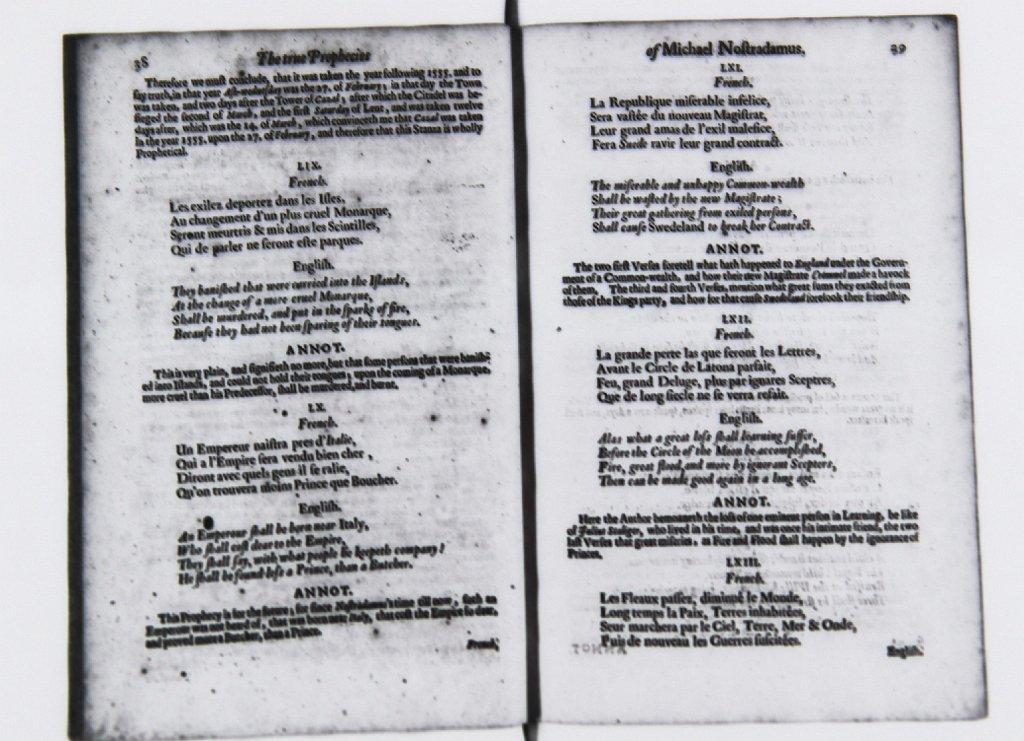 38
The true Prophecies
Therefore we must conclude, that it was taken the year following 1555. and to
say truth, in that year Ash-wednesday was the 27. of February; in that day the Town
was taken, and two days after the Tower of Casal; after which the Citadel was be-
sieged the second of March, and the first Saturday of Lent, and was taken twelve
days after, which was the 14. of March, which convinceth me that Casal was taken
in the year 1555. upon the 27. of February, and therefore that this Stanza is wholly
Prophetical.
LIX.
French.
Les exilez deportez dans les Isles,
Au changement d'un plus cruel Monarque,
Seront meurtris & mis dans les Scintilles,
Qui de parler ne seront este parques.
English.
They banished that were carried into the Islands,
At the change of a more cruel Monarque,
Shall be murdered, and put in the sparks of fire,
Because they had not been sparing of their tongues.
ANNOT.
This is very plain, and signifieth no more, but that some persons that were banish-
ed into Islands, and could not hold their tongues, upon the coming of a Monarque,
more cruel than his Predecessor, shall be murdered, and burnt.
LX.
French.
Un Empereur naistra pres d'Italie,
Qui a l'Empire sera vendu bien cher,
Diront avec quels gens il se ralie,
Qu'on trouvera moins Prince que Boucher.
English.
An Emperour shall be born near Italy,
Who shall cost dear to the Empire,
They shall say, with what people he keepeth company!
He shall be found less a Prince, than a Butcher.
ANNOT.
This Prophecy is for the future; for since Nostradamus's time till now, such an
Emperour was not heard of, that was born near Italy, that cost the Empire so dear,
and proved more a Butcher, than a Prince.
French,
of Michael Nostradamus,
39
LXI.
French.
La Republique miserable infelice,
Sera vastée du nouveau Magistrat,
Leur grand amas de l'exil malefice,
Fera Suede ravir leur grand contract.
English.
The miserable and unhappy Common-wealth
Shall be wasted by the new Magistrate;
Their great gathering from exiled persons,
Shall cause Swedeland to break her Contract.
ANNOT.
The two first Verses foretell what hath happened to England under the Govern-
ment of a Common-wealth, and how their new Magistrate Cromwel made a havock
of them, The third and fourth Verses, mention what great sums they exacted from
those of the Kings party, and how for that cause Swedeland forsook their friendship.
LXII.
French.
La grande perte las que feront les Lettres,
Avant le Circle de Latona parfait,
Feu, grand Deluge, plus par ignares Sceptres,
Que de long siecle ne se verra refait.
English.
Alas what a great loss shall learning suffer,
Before the Circle of the Moon be accomplished,
Fire, great flood, and more by ignorant Scepters,
Then can be made good again in a long age.
ANNOT.
Here the Author bemoaneth the loss of one eminent person in Learning, be like
of Julius Scaliger, who lived in his time, and was once his intimate friend, the two
last Verses that great miseries, as Fire and Flood shall happen by the ignorance of
Princes.
LXIII.
French.
Les Fleaux passez, diminué le Monde,
Long temps la Paix, Terres inhabitées,
Seur marchera par le Ciel, Terre, Mer & Onde,
Puis de nouveau les Guerres suscitées.
English.